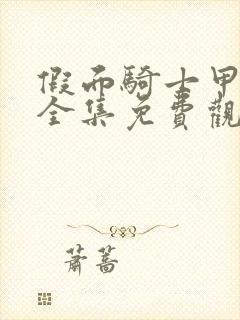 假面騎士甲
全集免費觀
蕭薔